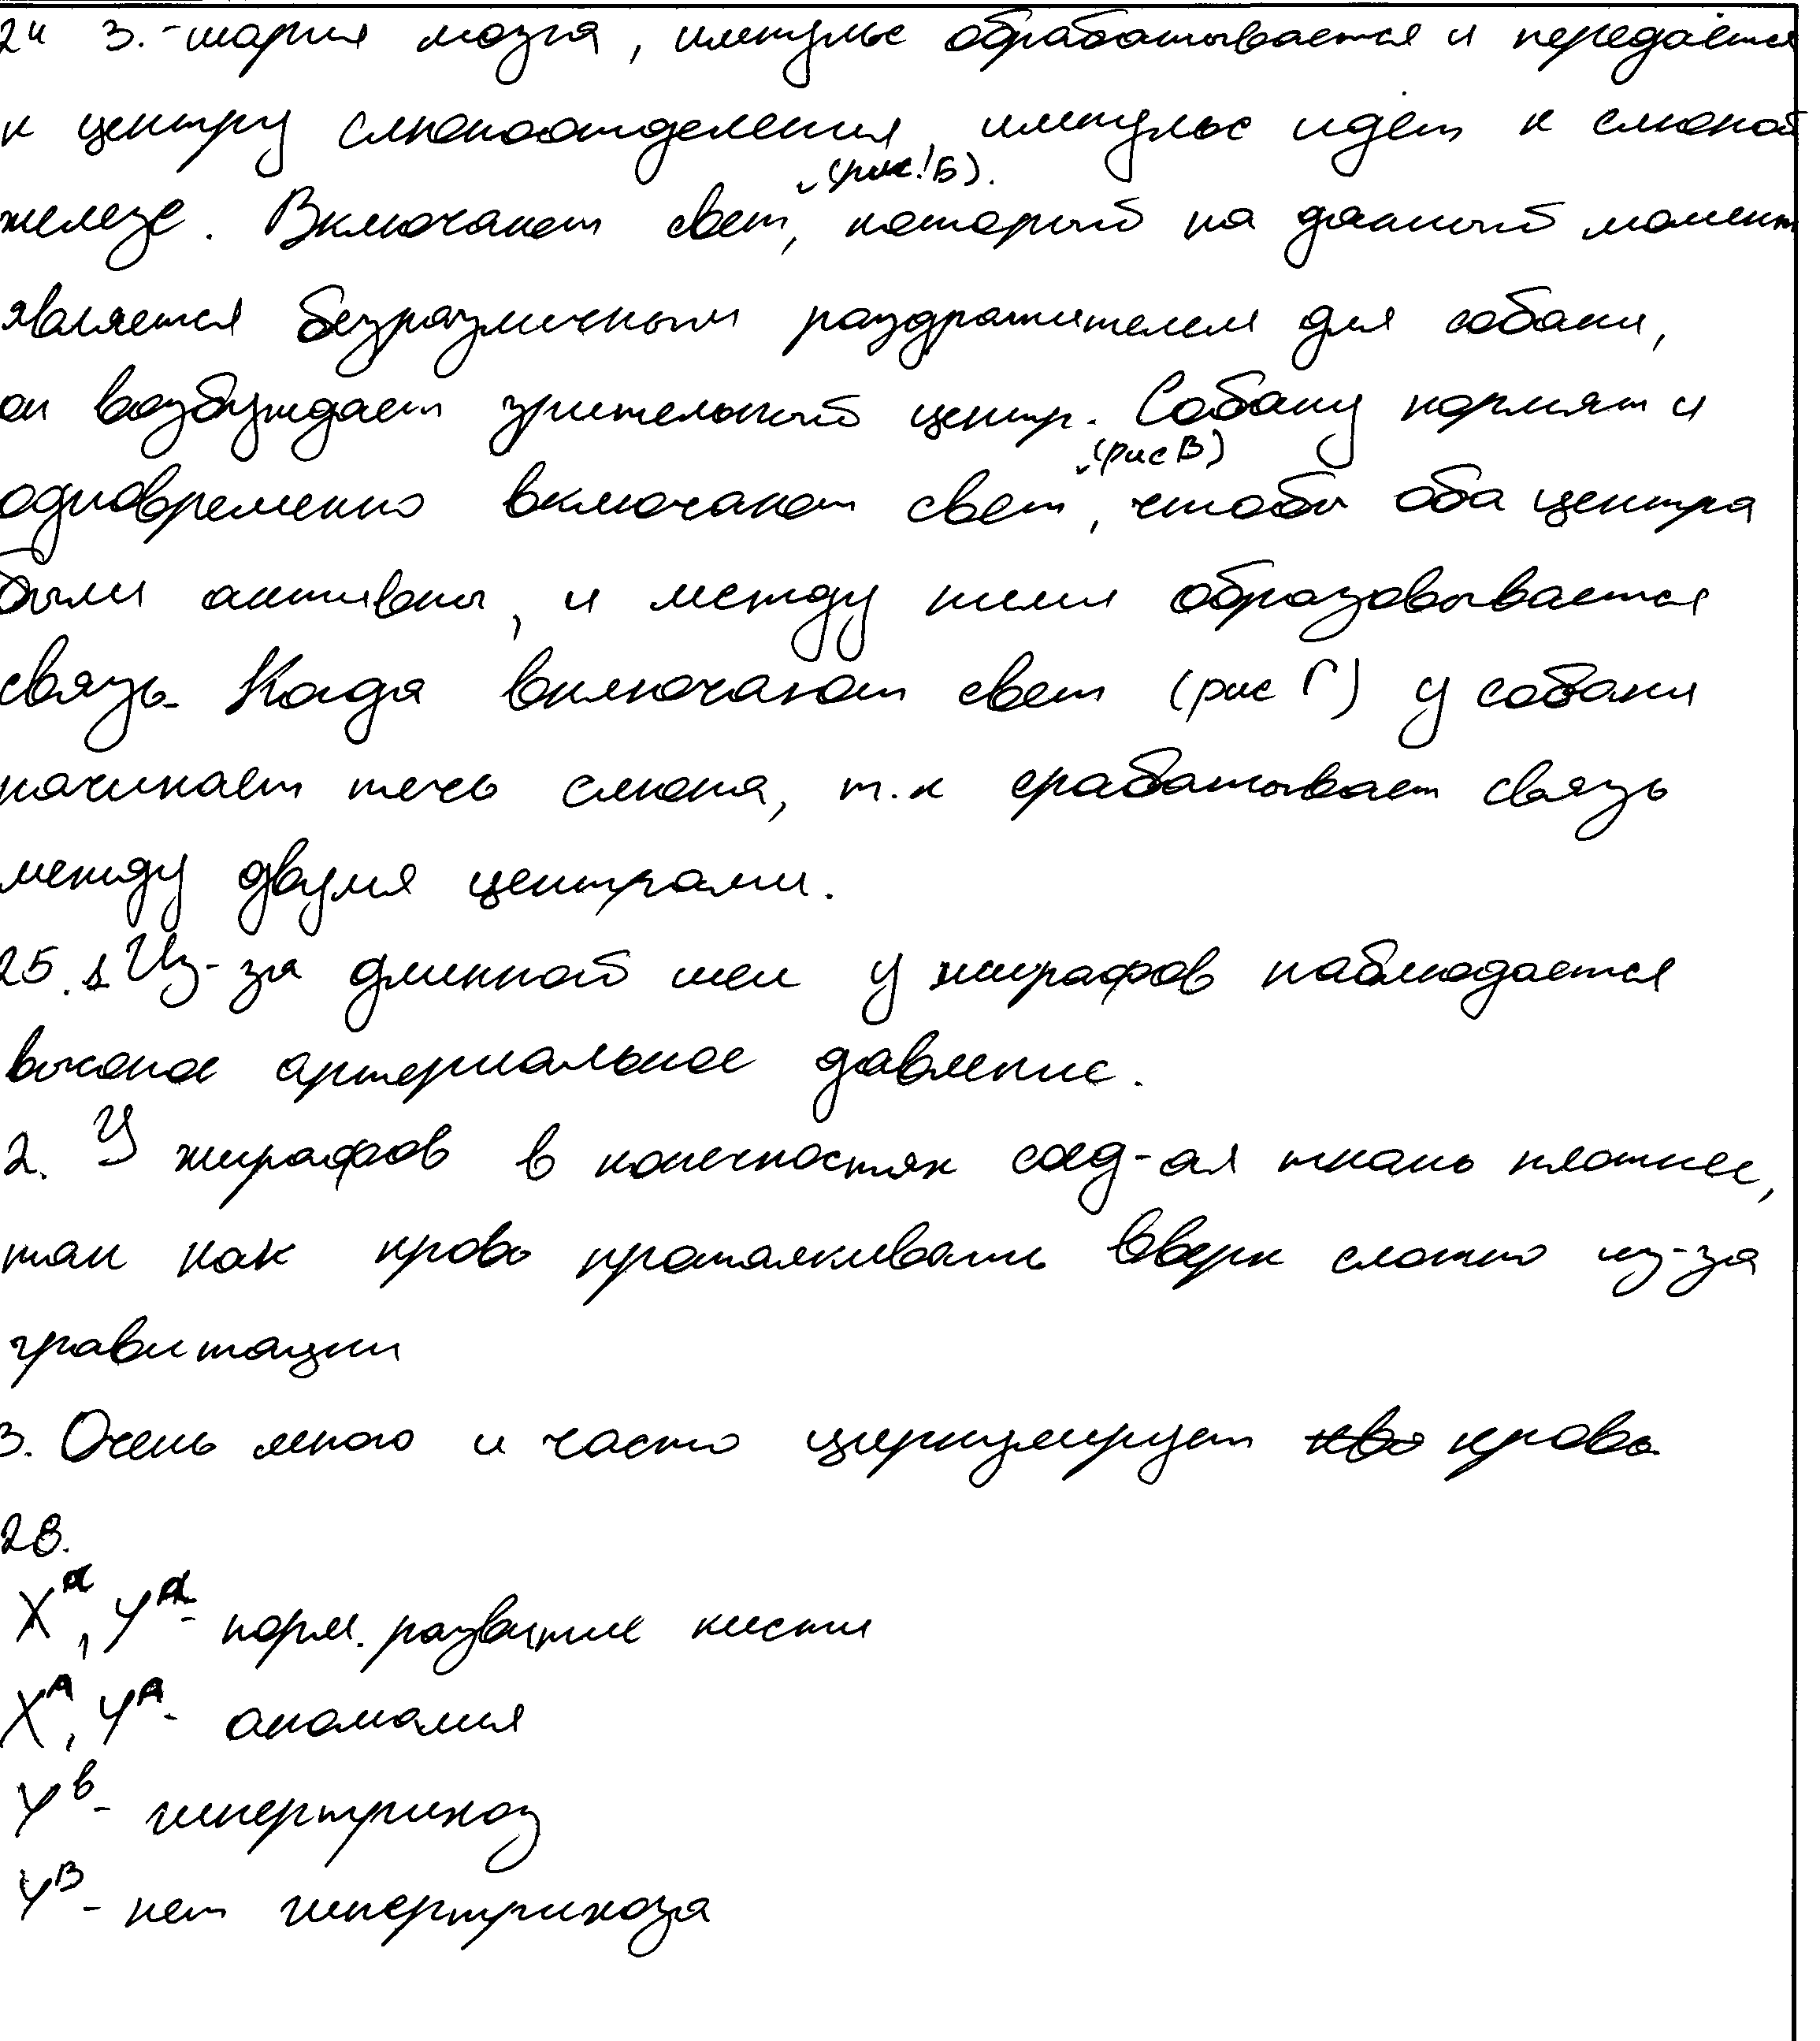 24 3. -тария мозга, импульс обрабатывается и передаётся
к центру слюноотделения, импульс идет к слюной
(рис. Б).
железе. Включают свет, который на данный момент
является безразличным раздражителем для собаки,
он возбуждает зрительный центр. Собаку кормят и
(рис В)
одновременно включают свет, чтобы оба центра
были активны, и между ними образовывается
связь. Когда включают свет (рис Г) у собаки
начинает течь слюна, т.к срабатывает связь
между двумя центрами.
25. 1. Из-за длинной шеи у жирафов наблюдается
высокое артериальное давление.
2. У жирафов в конечностях соед-ая ткань плотнее,
так как кровь проталкивать вверх сложно из-за
гравитации
3. Очень много и часто циркулирует кровь.
28.
Xᵃ, Yᵃ - норм. развитие кисти
Xᴬ, Yᴬ - аномалия
Yᵇ - гипертрихоз
Yᴮ - нет гипертрихоза